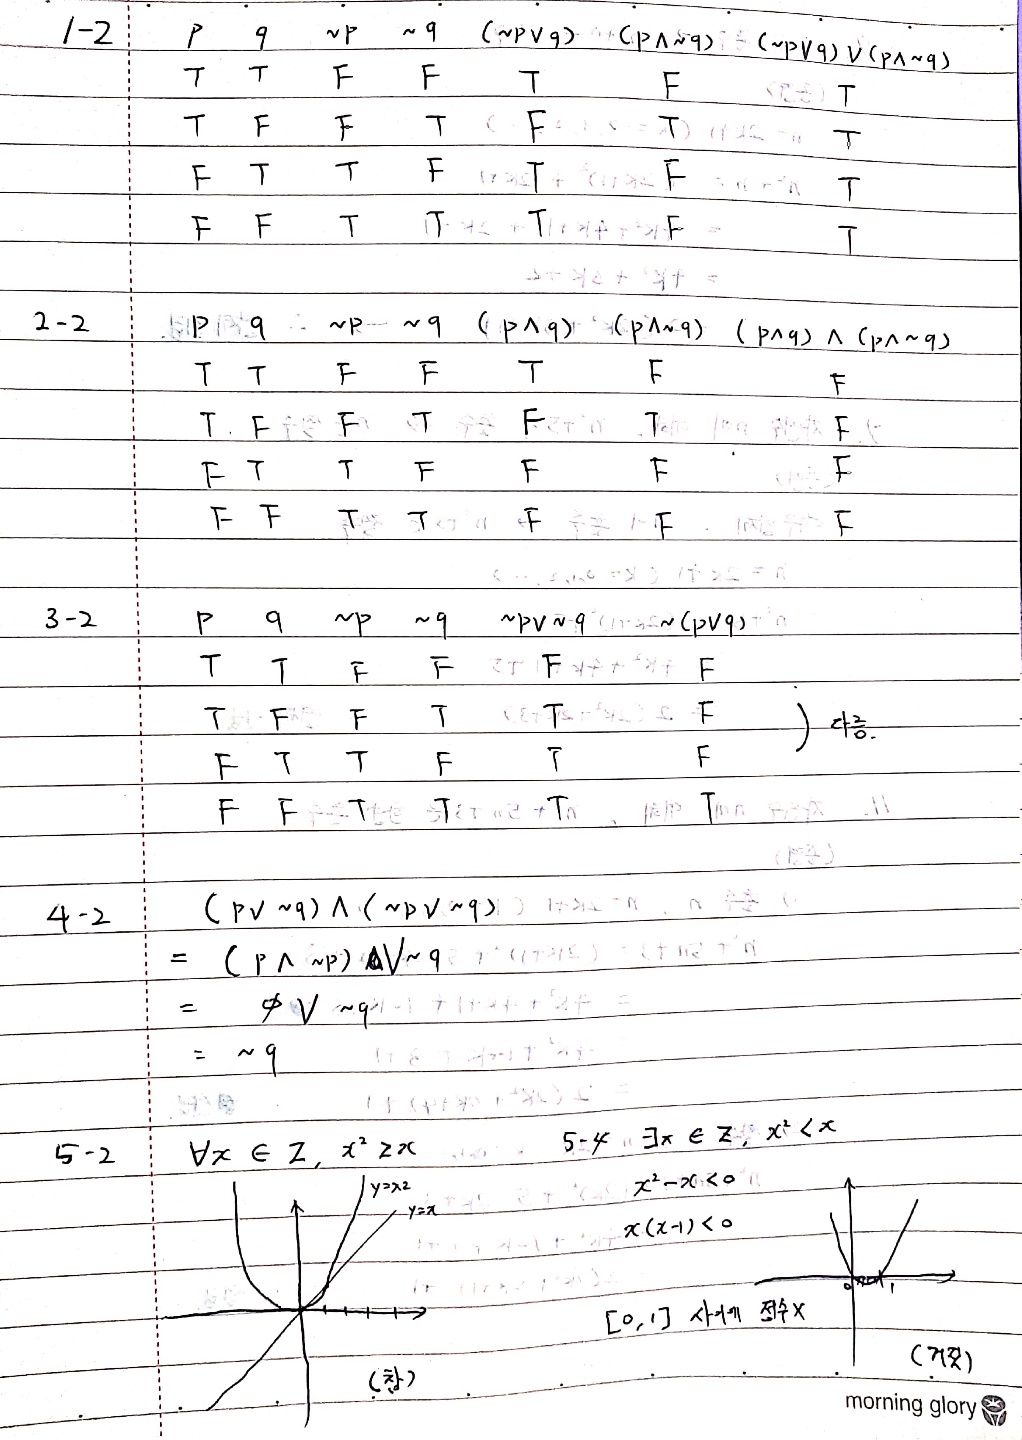 1-2 p q ~p ~q (~p∨q) (p∧~q) (~p∨q)∨(p∧~q)
T T F F T F T
T F F T F T T
F T T F T F T
F F T T T F T
2-2 p q ~p ~q (p∧q) (p∧~q) (p∧q)∧(p∧~q)
T T F F T F F
T F F T F T F
F T T F F F F
F F T T F F F
3-2 p q ~p ~q ~p∨~q ~(p∨q)
T T F F F F
T F F T T F ) 다름.
F T T F T F
F F T T T T
4-2 (p∨~q)∧(~p∨~q)
= (p∧~p)∨~q
= ϕ∨~q
= ~q
5-2 ∀x∈Z, x²≥x
y=x2
y=x
(참)
5-4 ∃x∈Z, x²<x
x²-x<0
x(x-1)<0
0 1
[0,1] 사이에 정수X
(거짓)
morning glory